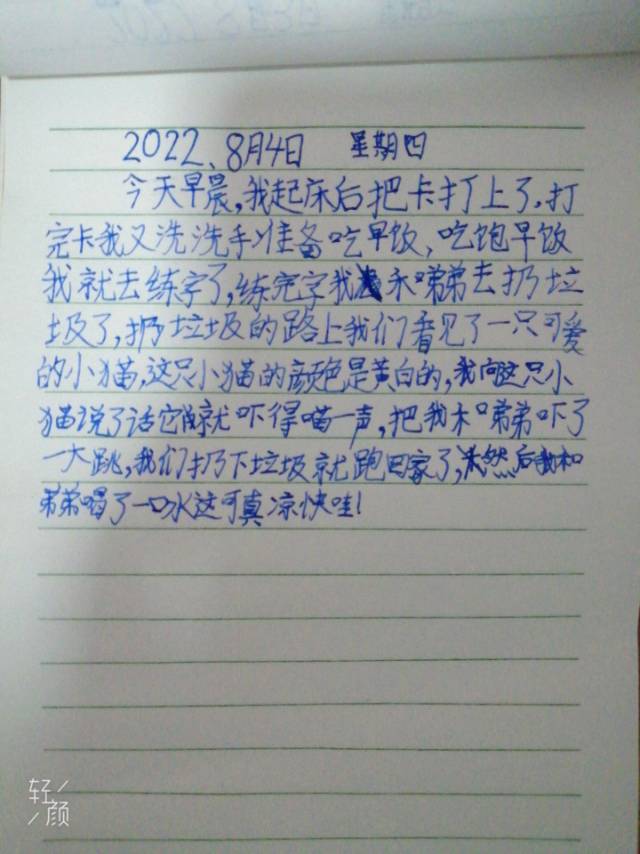 2022、8月4日 星期四
今天早晨,我起床后把卡打上了,打
完卡我又洗洗手准备吃早饭,吃饱早饭
我就去练字了,练完字我和弟弟去扔垃
圾了,扔垃圾的路上我们看见了一只可爱
的小猫,这只小猫的颜色是黄白的,我向这只小
猫说了话它就吓得喵一声,把我和弟弟吓了
一大跳,我们扔下垃圾就跑回家了,然后我和
弟弟喝了一口水这可真凉快哇!
轻颜